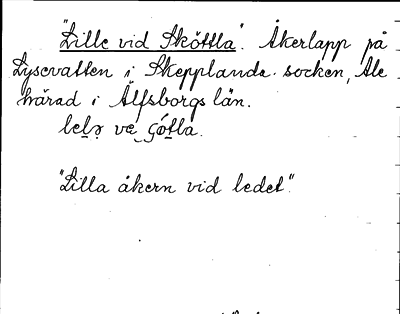 "Lille vid Sköttla". Åkerlapp på
Lysevatten i Skepplanda socken, Ale
härad i Älfsborgs län.
"Lilla åkern vid ledet".